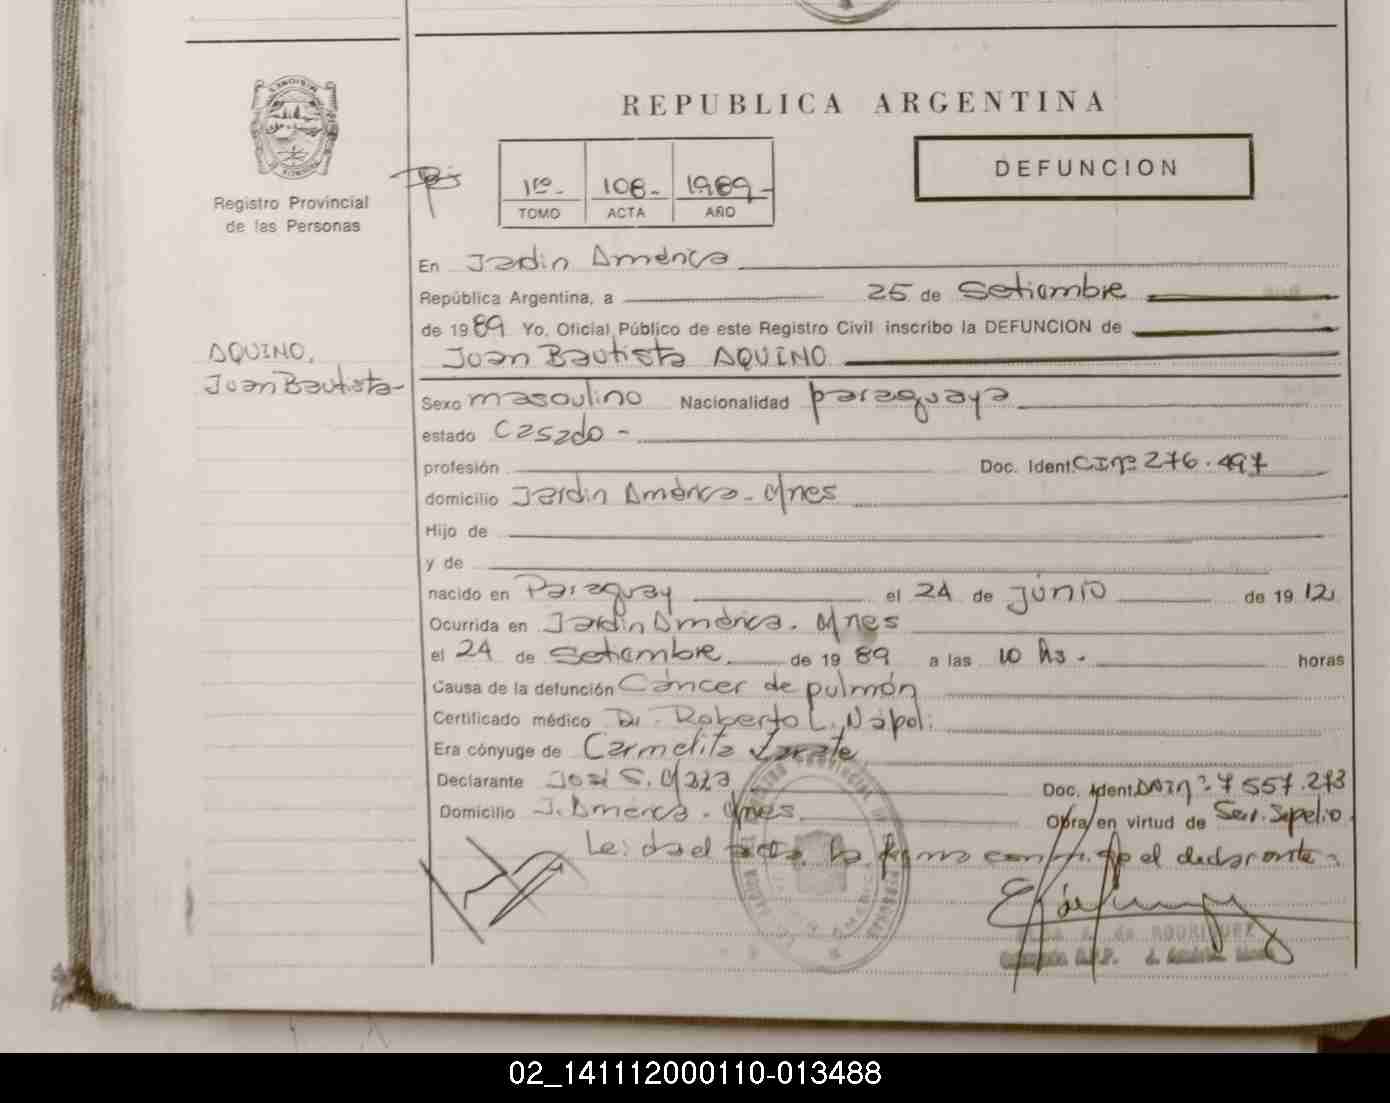 REPUBLICA ARGENTINA
DEFUNCION
Registro Provincial
de las Personas
1ro - 108 - 1989 -
TOMO ACTA AÑO
En Jardin América
República Argentina, a 25 de Setiembre
de 1989 Yo, Oficial Público de este Registro Civil inscribo la DEFUNCION de
Juan Bautista AQUINO
AQUINO,
Juan Bautista -
Sexo masculino Nacionalidad paraguaya
estado Casado -
profesión Doc. Ident. CI nº 276.497
domicilio Jardin América - Mnes
Hijo de
y de
nacido en Paraguay el 24 de junio de 1912
Ocurrida en Jardin América. Mnes
el 24 de Setiembre de 1989 a las 10 hs. horas
Causa de la defunción Cáncer de pulmón
Certificado médico Dr. Roberto L. Nápoli
Era cónyuge de Carmelita Zarate
Declarante José S. Doc. Ident. DNI nº 7557.273
Domicilio J. América - Mnes. Obra en virtud de Ser. Sepelio
Leida el acta la firma conmigo el declarante -
de RODRIGUEZ
02_141112000110-013488